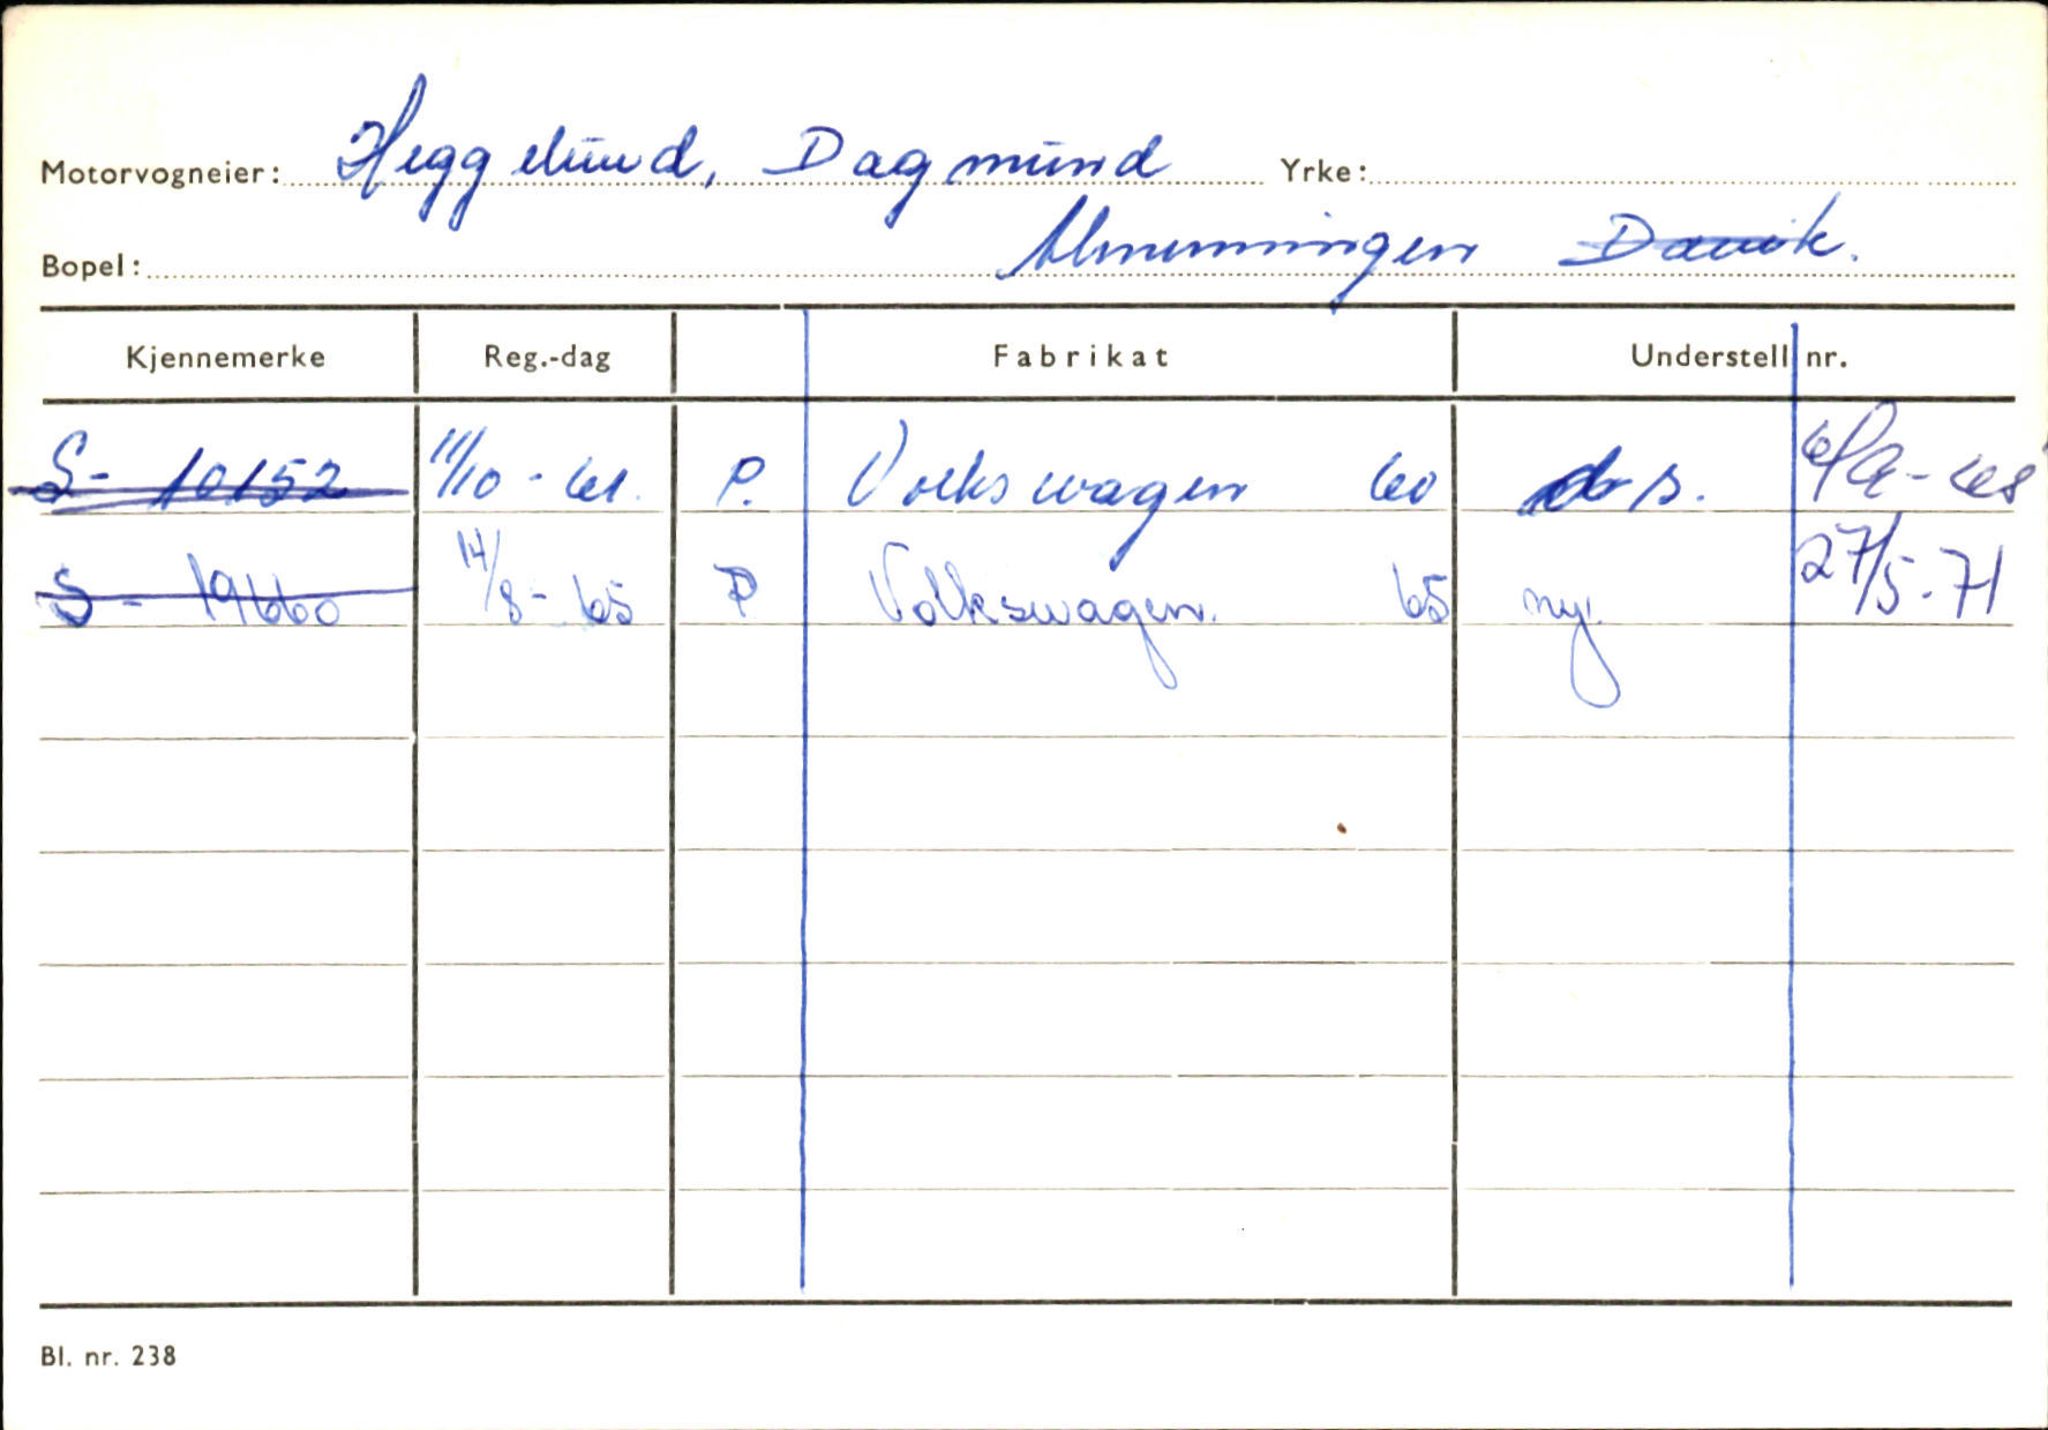 Motorvogneier: Heggelund, Dagmund Yrke:
Bopel: Almenningen Davik.
Kjennemerke Reg.-dag Fabrikat Understell nr.
S- 10152 11/10-61. P. Volkswagen 60 d.s.
S- 19660 14/8-65 P Volkswagen. 65 ny. 27/5-71
Bl. nr. 238